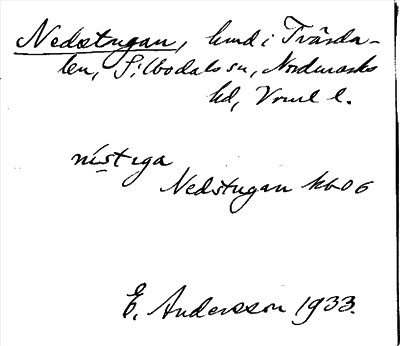 Nedstugan, hmd i Tvärda-
len, Silbodals sn, Nordmarks
hd, Vrml l.
nistiga
Nedstugan kb 06
E. Andersson 1933.